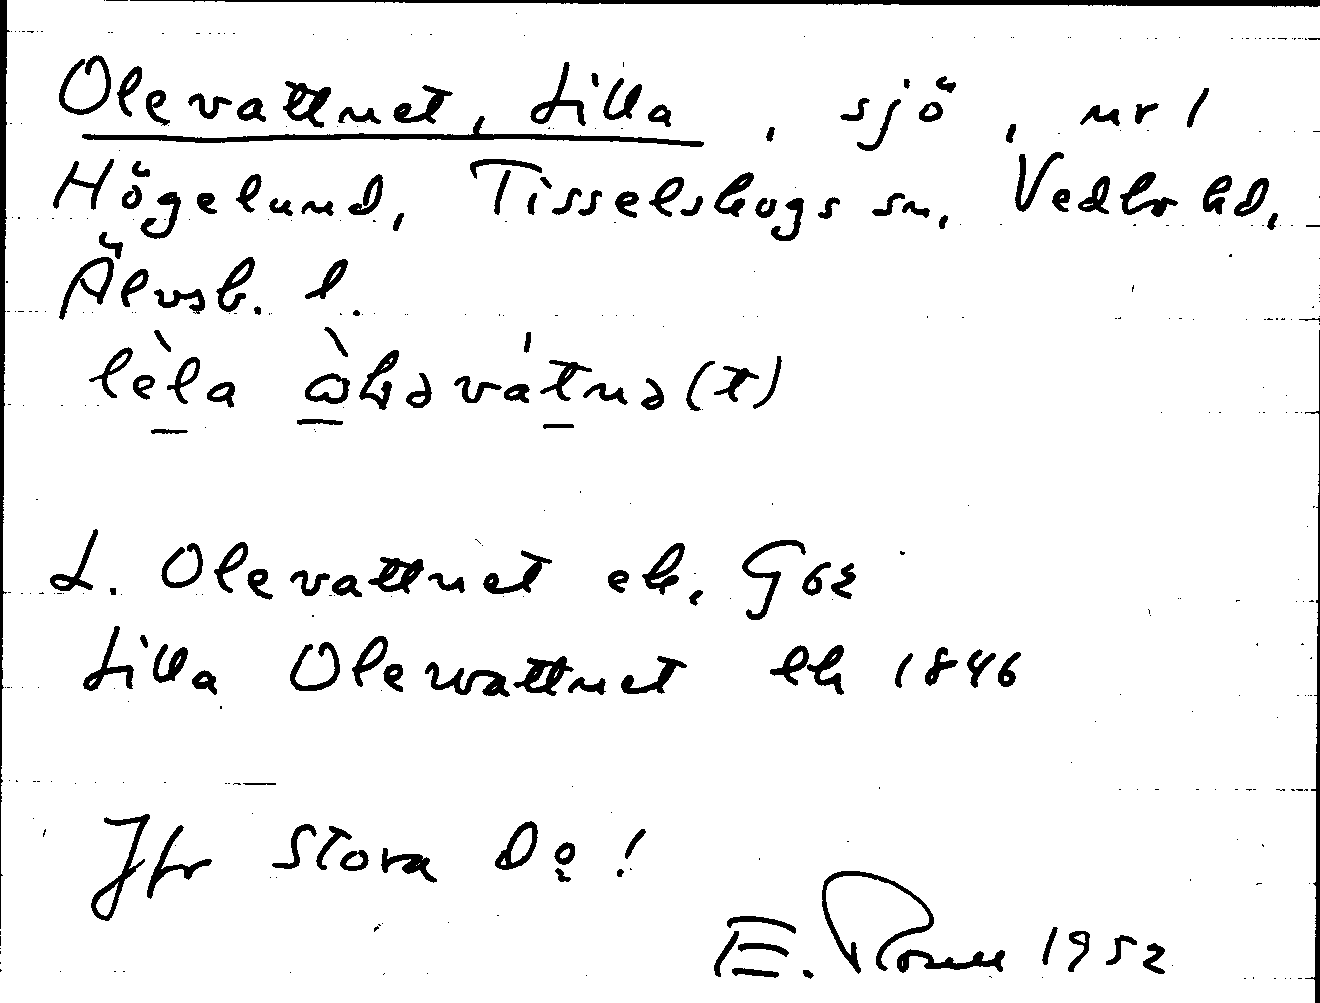 Olevattnet, Lilla, sjö, nr 1
Högelund, Tisselskogs sn, Vedbo hd,
Älvsb. l.
lèla
L. Olevattnet ek. G
Lilla Olewattnet lk 1846
Jfr Stora Do!
E. Rosell 1952